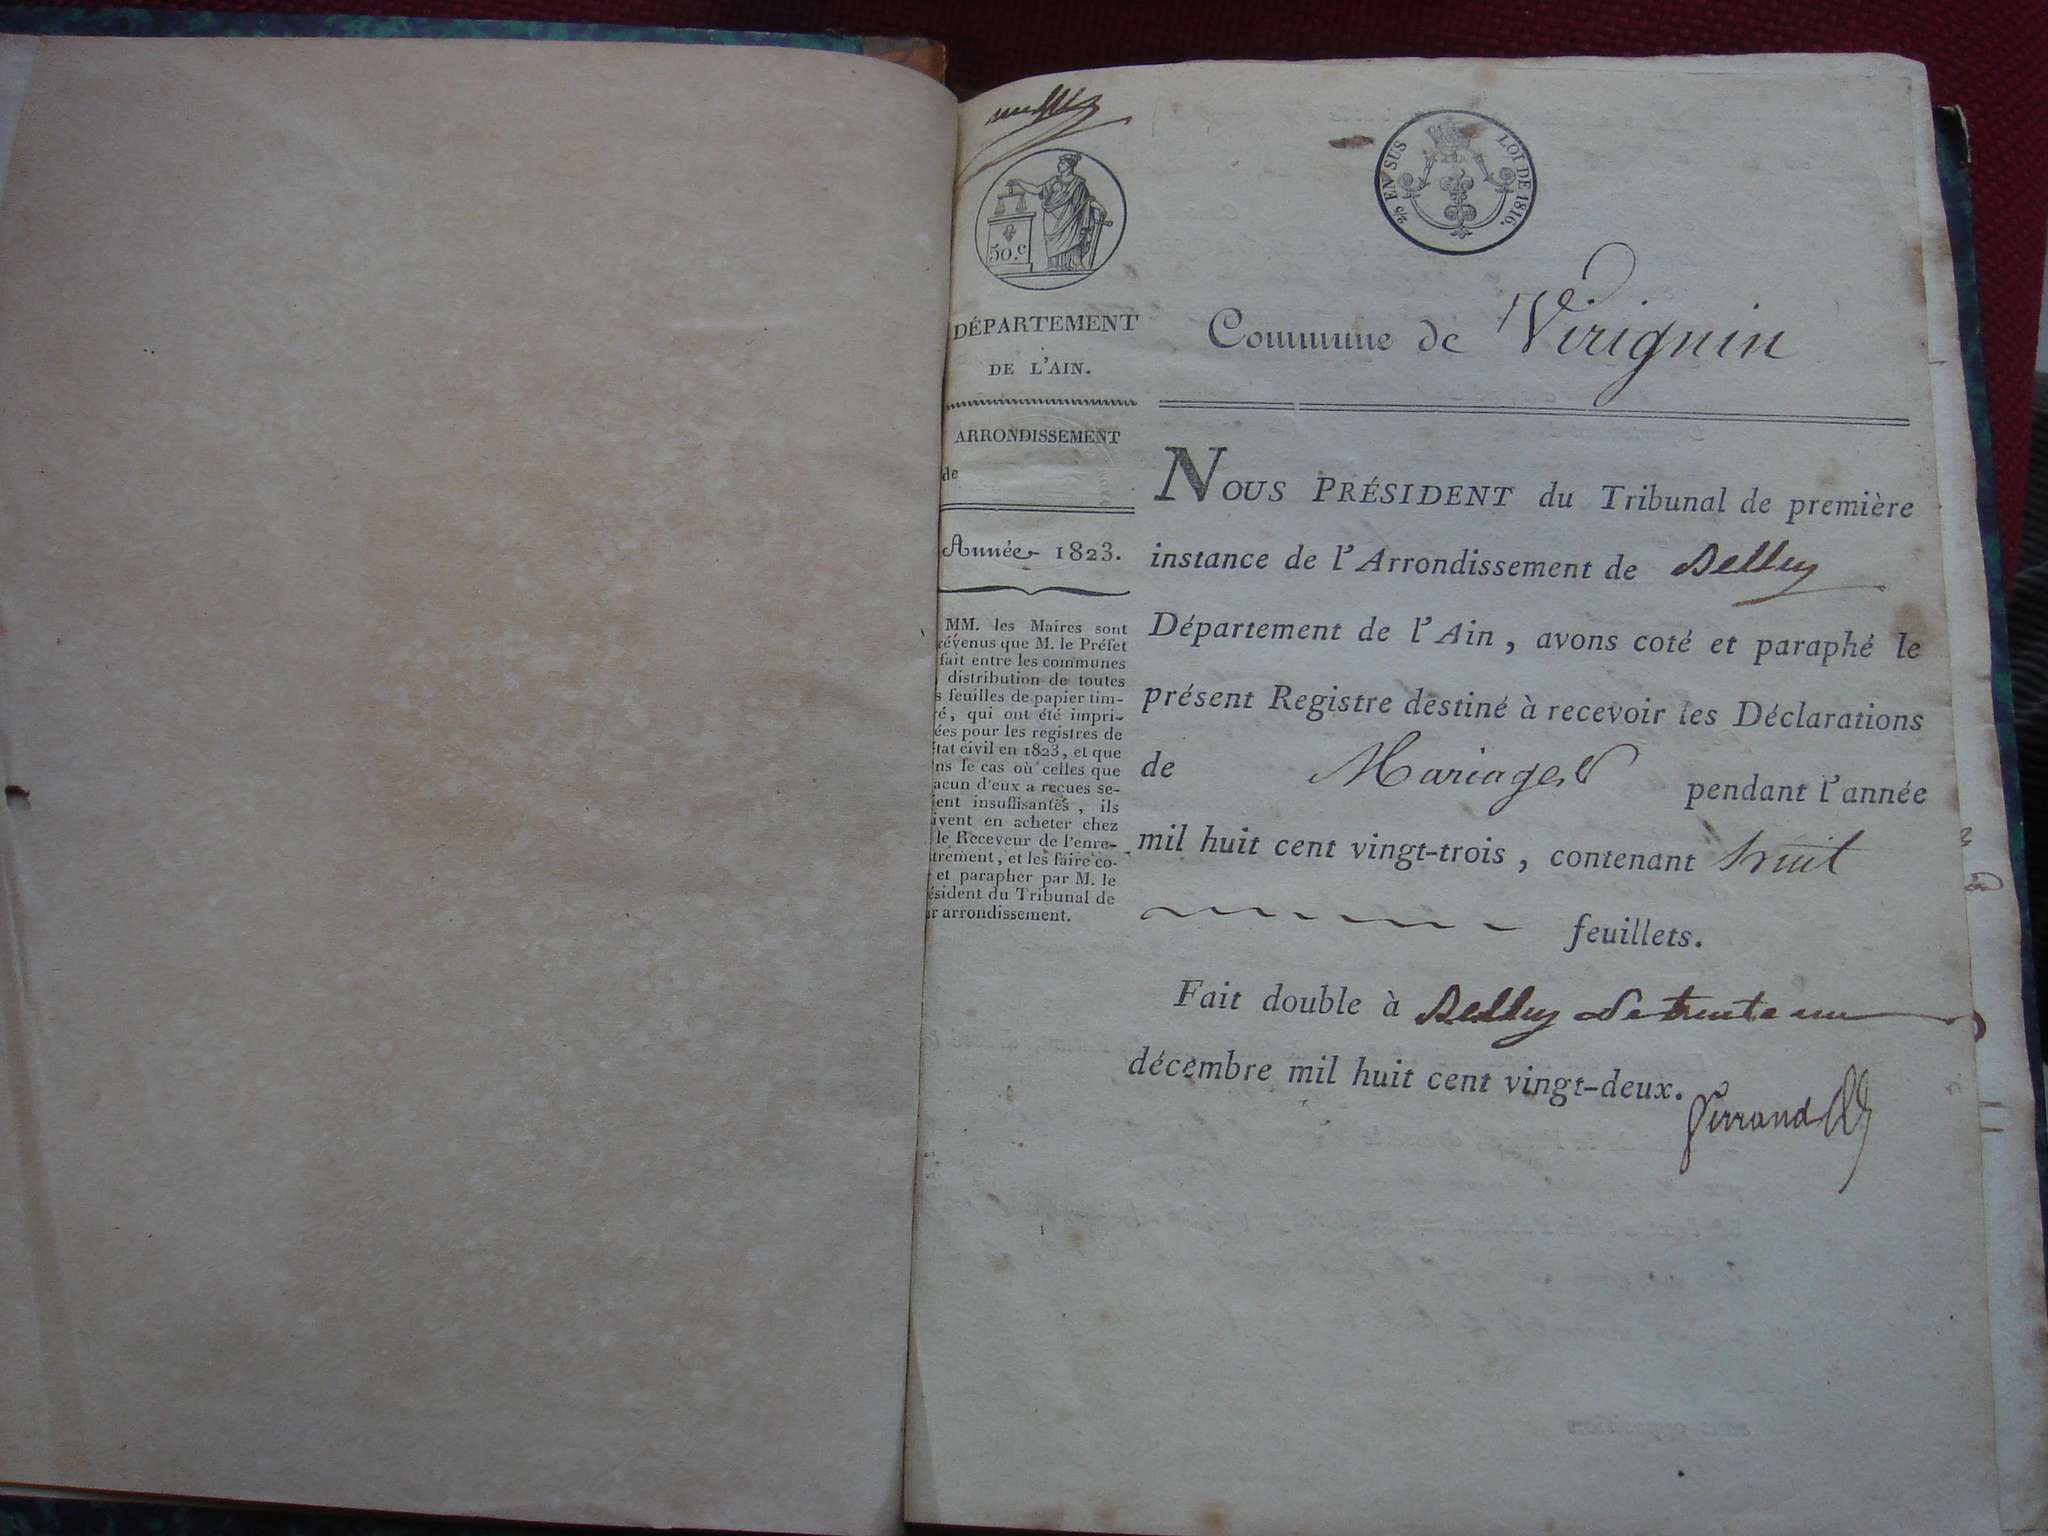 50.c
2/5 EN SUS LOI DE 1816.
DÉPARTEMENT
DE L'AIN.
ARRONDISSEMENT
de
Année 1823.
MM. les Maires sont
révenus que M. le Préfet
fait entre les communes
distribution de toutes
s feuilles de papier tim-
ré, qui ont été impri-
ées pour les registres de
état civil en 1823, et que
ns le cas où celles que
acun d'eux a reçues se-
ient insuffisantes, ils
ivent en acheter chez
le Receveur de l'enre-
trement, et les faire co-
et parapher par M. le
ésident du Tribunal de
ur arrondissement.
Commune de Virignin
NOUS PRÉSIDENT du Tribunal de première
instance de l'Arrondissement de Belley
Département de l'Ain, avons coté et paraphé le
présent Registre destiné à recevoir les Déclarations
de Mariages pendant l'année
mil huit cent vingt-trois, contenant huit
feuillets.
Fait double à Belley le trente un
décembre mil huit cent vingt-deux.